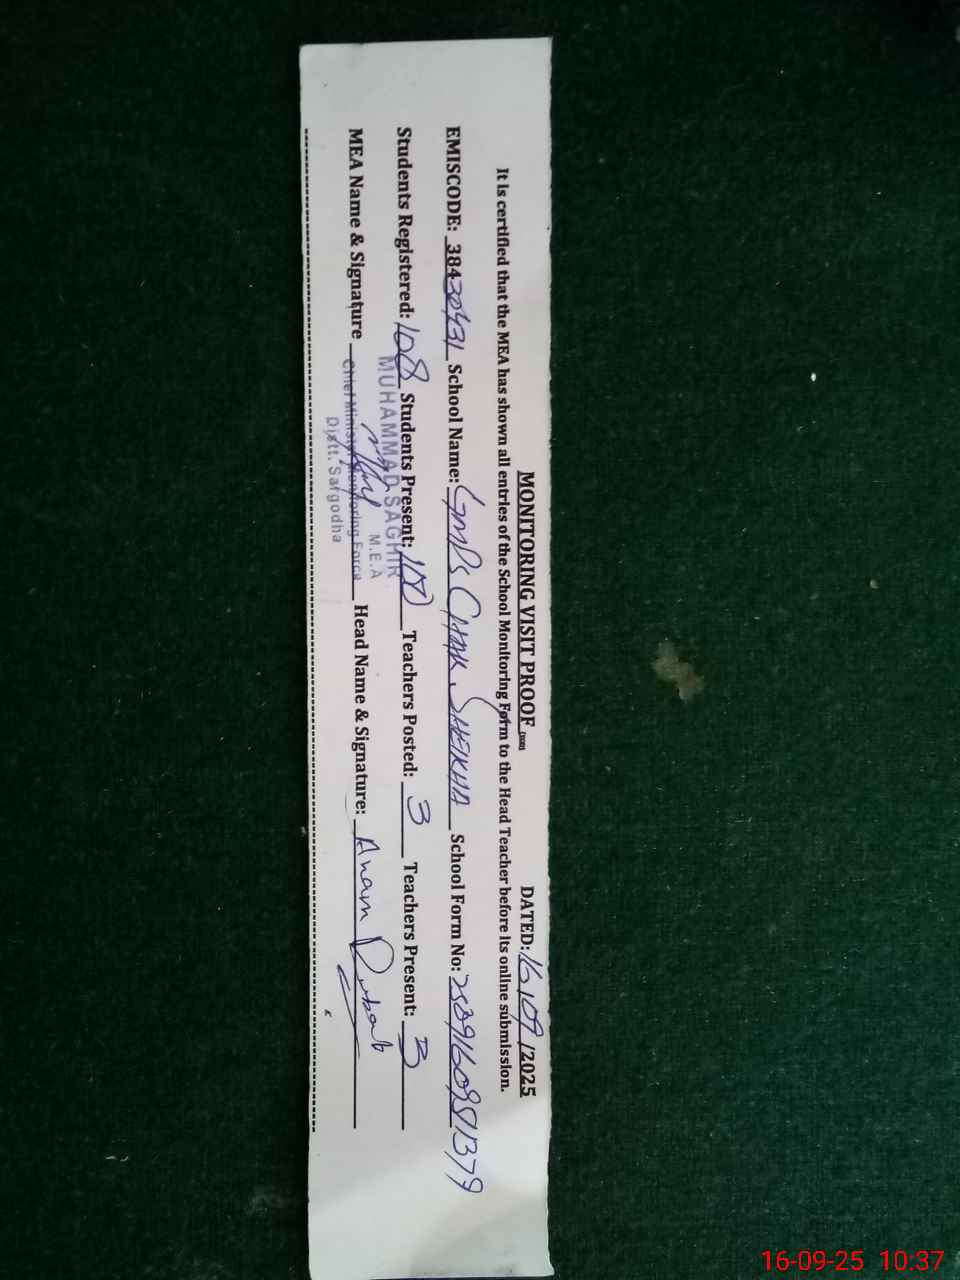 MONITORING VISIT PROOF DATED: 16/09/2025
It is certified that the MEA has shown all entries of the School Monitoring Form to the Head Teacher before its online submission.
EMISCODE: 38430431 School Name: GMPS CHAK SHEIKHA School Form No:
Students Registered: 108 Students Present: 100 Teachers Posted: 3 Teachers Present: 3
MUHAMMAD SAGHIR
M.E.A
MEA Name & Signature Head Name & Signature: Anam
Chief Minister Monitoring Force
Distt. Sargodha
16-09-25 10:37